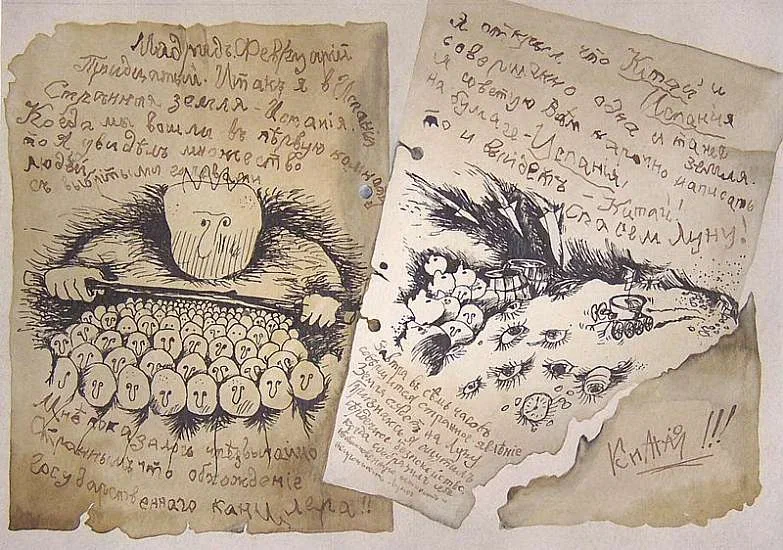 Мадридъ. Февруарій
Тридцатый. Итакъ я в Испаніи
Странная земля - Испанія.
Когда мы вошли въ первую комнату
то я увидѣлъ множество
людей
съ выбритыми головами
Мнѣ показалось чрезвычайно
Страннымъ что обхожденіе
Государственнаго канцлера!!
Я открылъ, что Китай и
Испания
совершенно одна и таже
земля.
я советую Вамъ нарочно написать
на бумаге - Испанія,
то и выйдетъ - Китай!!
Спасем Луну!
Завтра въ семь часовъ
совершится странное явленіе
Земля сядет на Луну
Признаюсь я ощутилъ
сердечное безпокойство
когда вообразилъ себѣ
Китай!!!